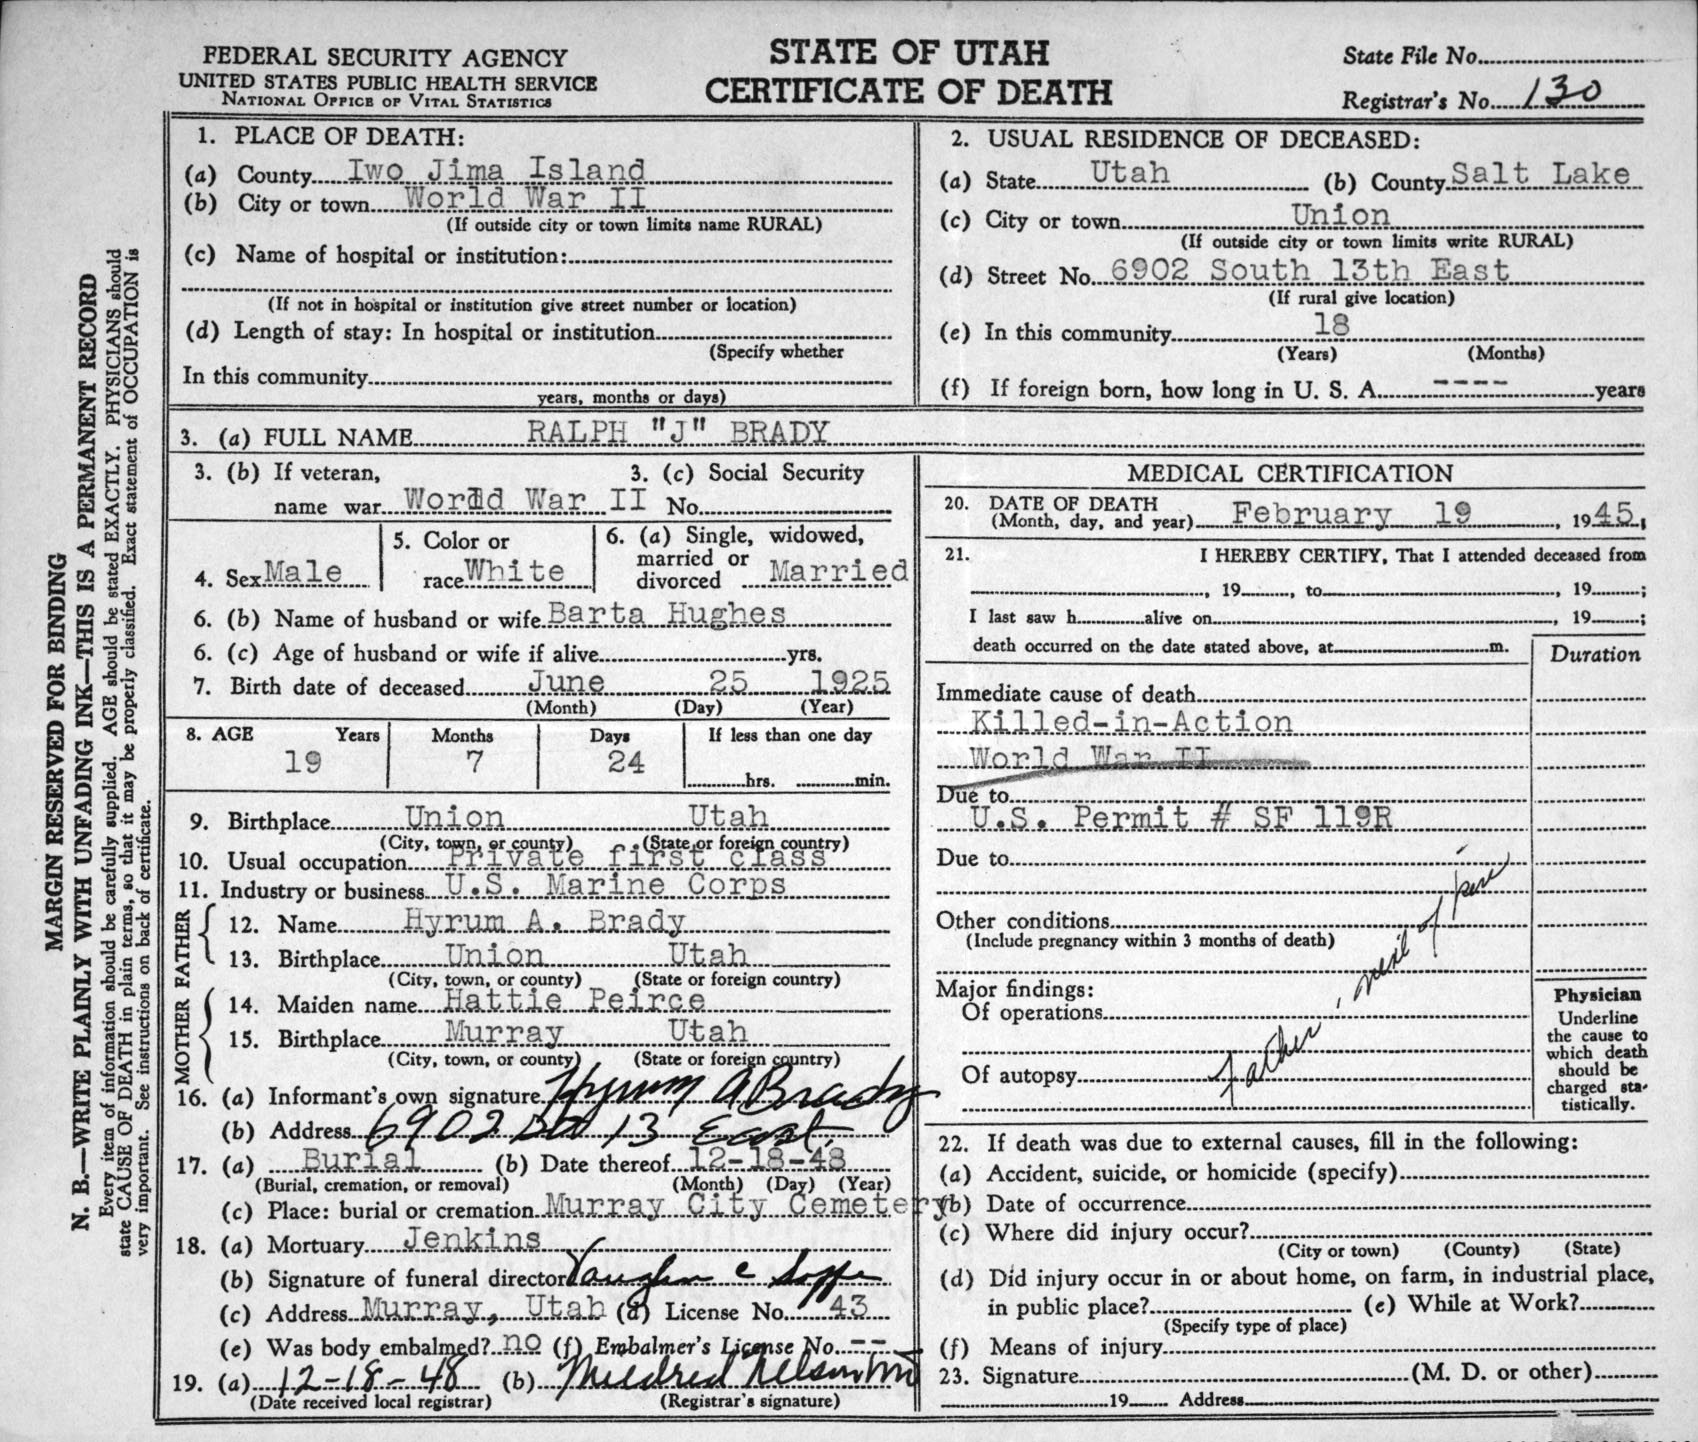 FEDERAL SECURITY AGENCY
UNITED STATES PUBLIC HEALTH SERVICE
NATIONAL OFFICE OF VITAL STATISTICS
STATE OF UTAH
CERTIFICATE OF DEATH
State File No.
Registrar's No. 130
MARGIN RESERVED FOR BINDING
N. B.—WRITE PLAINLY WITH UNFADING INK—THIS IS A PERMANENT RECORD
Every item of information should be carefully supplied. AGE should be stated EXACTLY. PHYSICIANS should
state CAUSE OF DEATH in plain terms, so that it may be properly classified. Exact statement of OCCUPATION is
very important. See instructions on back of certificate.
1. PLACE OF DEATH:
(a) County Iwo Jima Island
(b) City or town World War II
(If outside city or town limits name RURAL)
(c) Name of hospital or institution:
(If not in hospital or institution give street number or location)
(d) Length of stay: In hospital or institution
(Specify whether
In this community
years, months or days)
2. USUAL RESIDENCE OF DECEASED:
(a) State Utah (b) County Salt Lake
(c) City or town Union
(If outside city or town limits write RURAL)
(d) Street No. 6902 South 13th East
(If rural give location)
(e) In this community 18
(Years) (Months)
(f) If foreign born, how long in U. S. A. ---- years
3. (a) FULL NAME RALPH "J" BRADY
3. (b) If veteran, 3. (c) Social Security
name war World War II No.
4. Sex Male
5. Color or
race White
6. (a) Single, widowed,
married or
divorced Married
6. (b) Name of husband or wife Barta Hughes
6. (c) Age of husband or wife if alive yrs.
7. Birth date of deceased June 25 1925
(Month) (Day) (Year)
8. AGE Years Months Days If less than one day
19 7 24 hrs. min.
9. Birthplace Union Utah
(City, town, or county) (State or foreign country)
10. Usual occupation Private first class
11. Industry or business U.S. Marine Corps
FATHER
12. Name Hyrum A. Brady
13. Birthplace Union Utah
(City, town, or county) (State or foreign country)
MOTHER
14. Maiden name Hattie Peirce
15. Birthplace Murray Utah
(City, town, or county) (State or foreign country)
16. (a) Informant's own signature Hyrum A Brady
(b) Address 6902 So 13 East
17. (a) Burial (b) Date thereof 12-18-48
(Burial, cremation, or removal) (Month) (Day) (Year)
(c) Place: burial or cremation Murray City Cemetery
18. (a) Mortuary Jenkins
(b) Signature of funeral director Vaughn C
(c) Address Murray, Utah (d) License No. 43
(e) Was body embalmed? no (f) Embalmer's License No. --
19. (a) 12-18-48 (b) Mildred Nelson
(Date received local registrar) (Registrar's signature)
MEDICAL CERTIFICATION
20. DATE OF DEATH
(Month, day, and year) February 19, 1945.
21. I HEREBY CERTIFY, That I attended deceased from
, 19 , to , 19 ;
I last saw h alive on , 19 ;
death occurred on the date stated above, at m.
Duration
Immediate cause of death
Killed-in-Action
World War II
Due to
U.S. Permit # SF 119R
Due to
Other conditions
(Include pregnancy within 3 months of death)
Major findings:
Of operations
Of autopsy
Father, next of kin
Physician
Underline
the cause to
which death
should be
charged sta-
tistically.
22. If death was due to external causes, fill in the following:
(a) Accident, suicide, or homicide (specify)
(b) Date of occurrence
(c) Where did injury occur?
(City or town) (County) (State)
(d) Did injury occur in or about home, on farm, in industrial place,
in public place? (e) While at Work?
(Specify type of place)
(f) Means of injury
23. Signature (M. D. or other)
19 Address